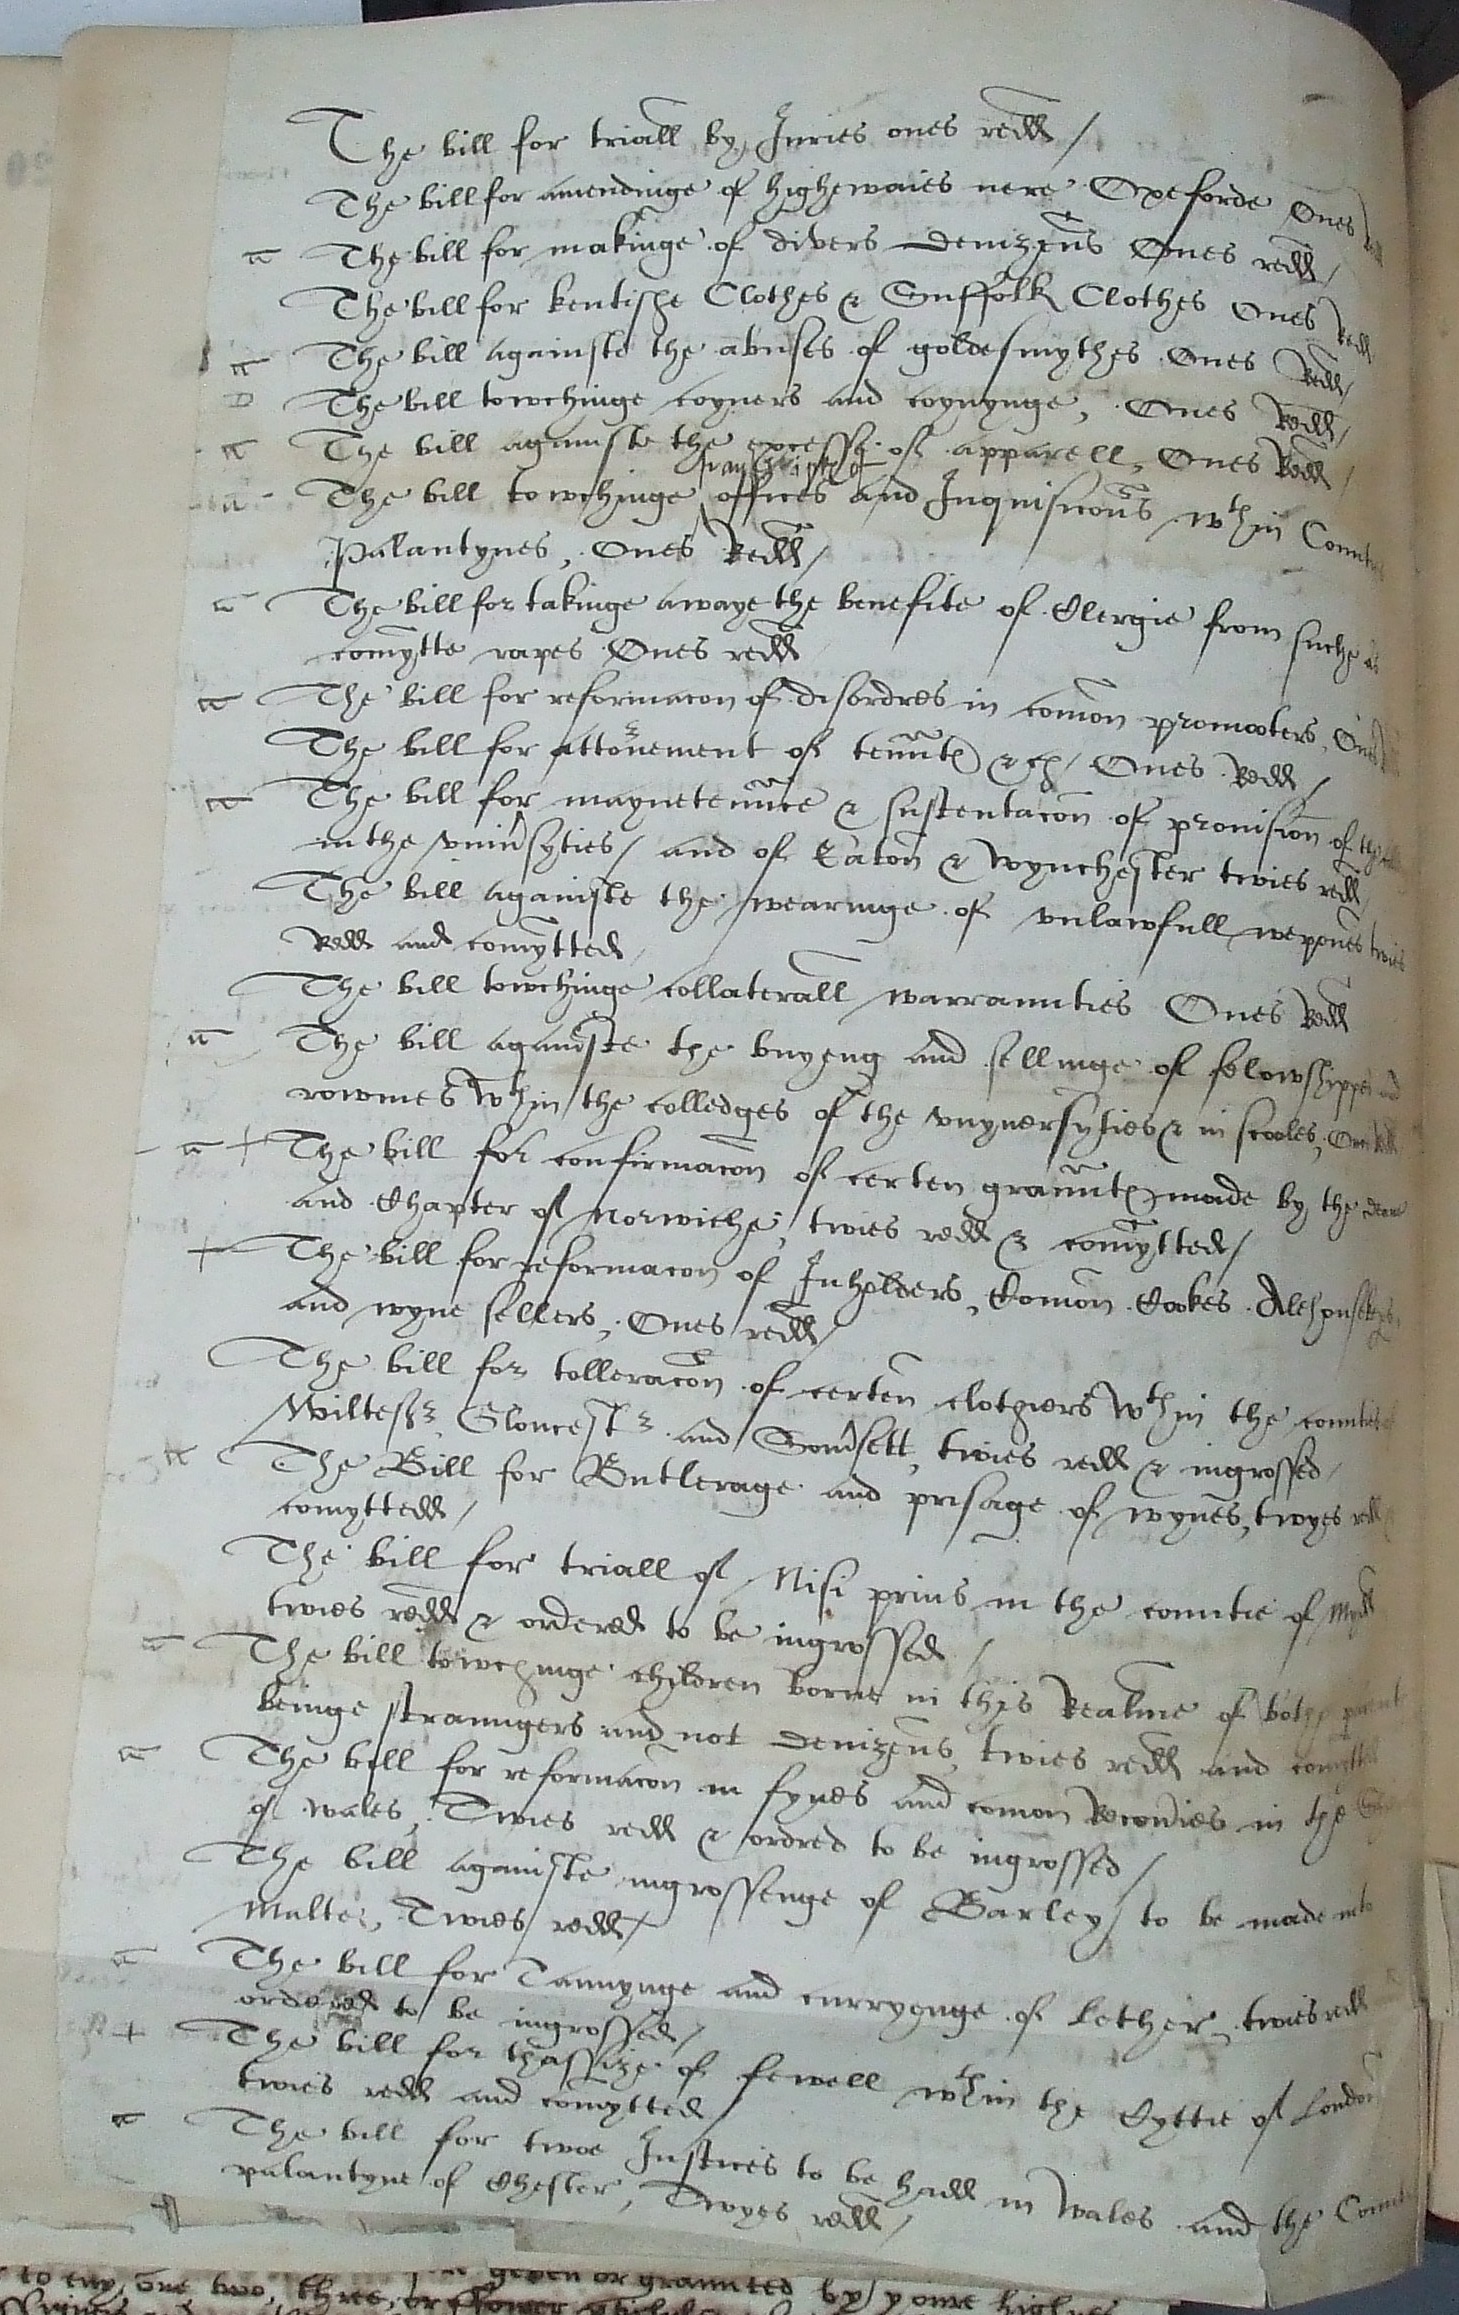 The bill for triall by Juries ones redd /
The bill for amendinge of highewaies nere Oxeforde Ones
a The bill for makinge of divers denizens Ones redd /
The bill for kentishe Clothes & Suffolk Clothes Ones Redd
a The bill againste the abuses of goldesmythes Ones Redd /
D The bill towchinge coyners and coynynge, Ones Redd /
a The bill againste the excesse of apparell, Ones Redd /
transcripte of
a The bill towchinge offices and Inquisicons wthin Count
Palantynes, Ones Redd /
a The bill for takinge awaye the benefite of Clergie from suche as
comytte rapes Ones redd
a The bill for reformacon of disordres in comon promooters, Ones
The bill for attornement of tennts &c / Ones Redd /
a The bill for mayntenнce & sustentacon of provision of
in the univrsyties / and of Eaton & wynchester twies redd
The bill againste the wearinge of unlawfull wepones twies
Redd and comytted /
The bill towchinge collaterall warraunties Ones Redd
a The bill againste the buyeng and sellinge of felowshippes and
rowmes wthin the colledges of the unyversyties & in scooles, Ones Redd
a + The bill for confirmacon of certen graunts made by the deane
and Chapter of Norwiche, twies redd & comytted /
+ The bill for reformacon of Inholders, Comon Cookes Alehousekeps
and wyne sellers, Ones redd /
The bill for tolleracon of certen clothiers wthin the counties of
Wiltesh, Gloucestr and Somsett, twies redd & ingrossed /
a The Bill for Butlerage and prisage of wynes, twyes redd
comyttedd /
The bill for triall of Nisi prius in the countie of Midd
twies redd & ordered to be ingrossed /
a The bill towchinge children borne in this Realme of bothe parents
beinge straungers and not denizens, twies redd and comytted
a The bill for reformacon in fynes and comon Recoveies in the
of wales, Twies redd & ordred to be ingrossed /
The bill againste ingrossenge of Barley to be made into
Malte, Twies redd /
a The bill for Tannynge and curryenge of Lether, twies redd
ordered to be ingrossed /
+ The bill for thassize of fewell wthin the Cyttie of London
twies redd and comytted /
a The bill for twoe Justices to be hadd in wales and the Count
palantyne of Chester, Twyes redd /
to any one two, three, or given or graunted by youre highnes